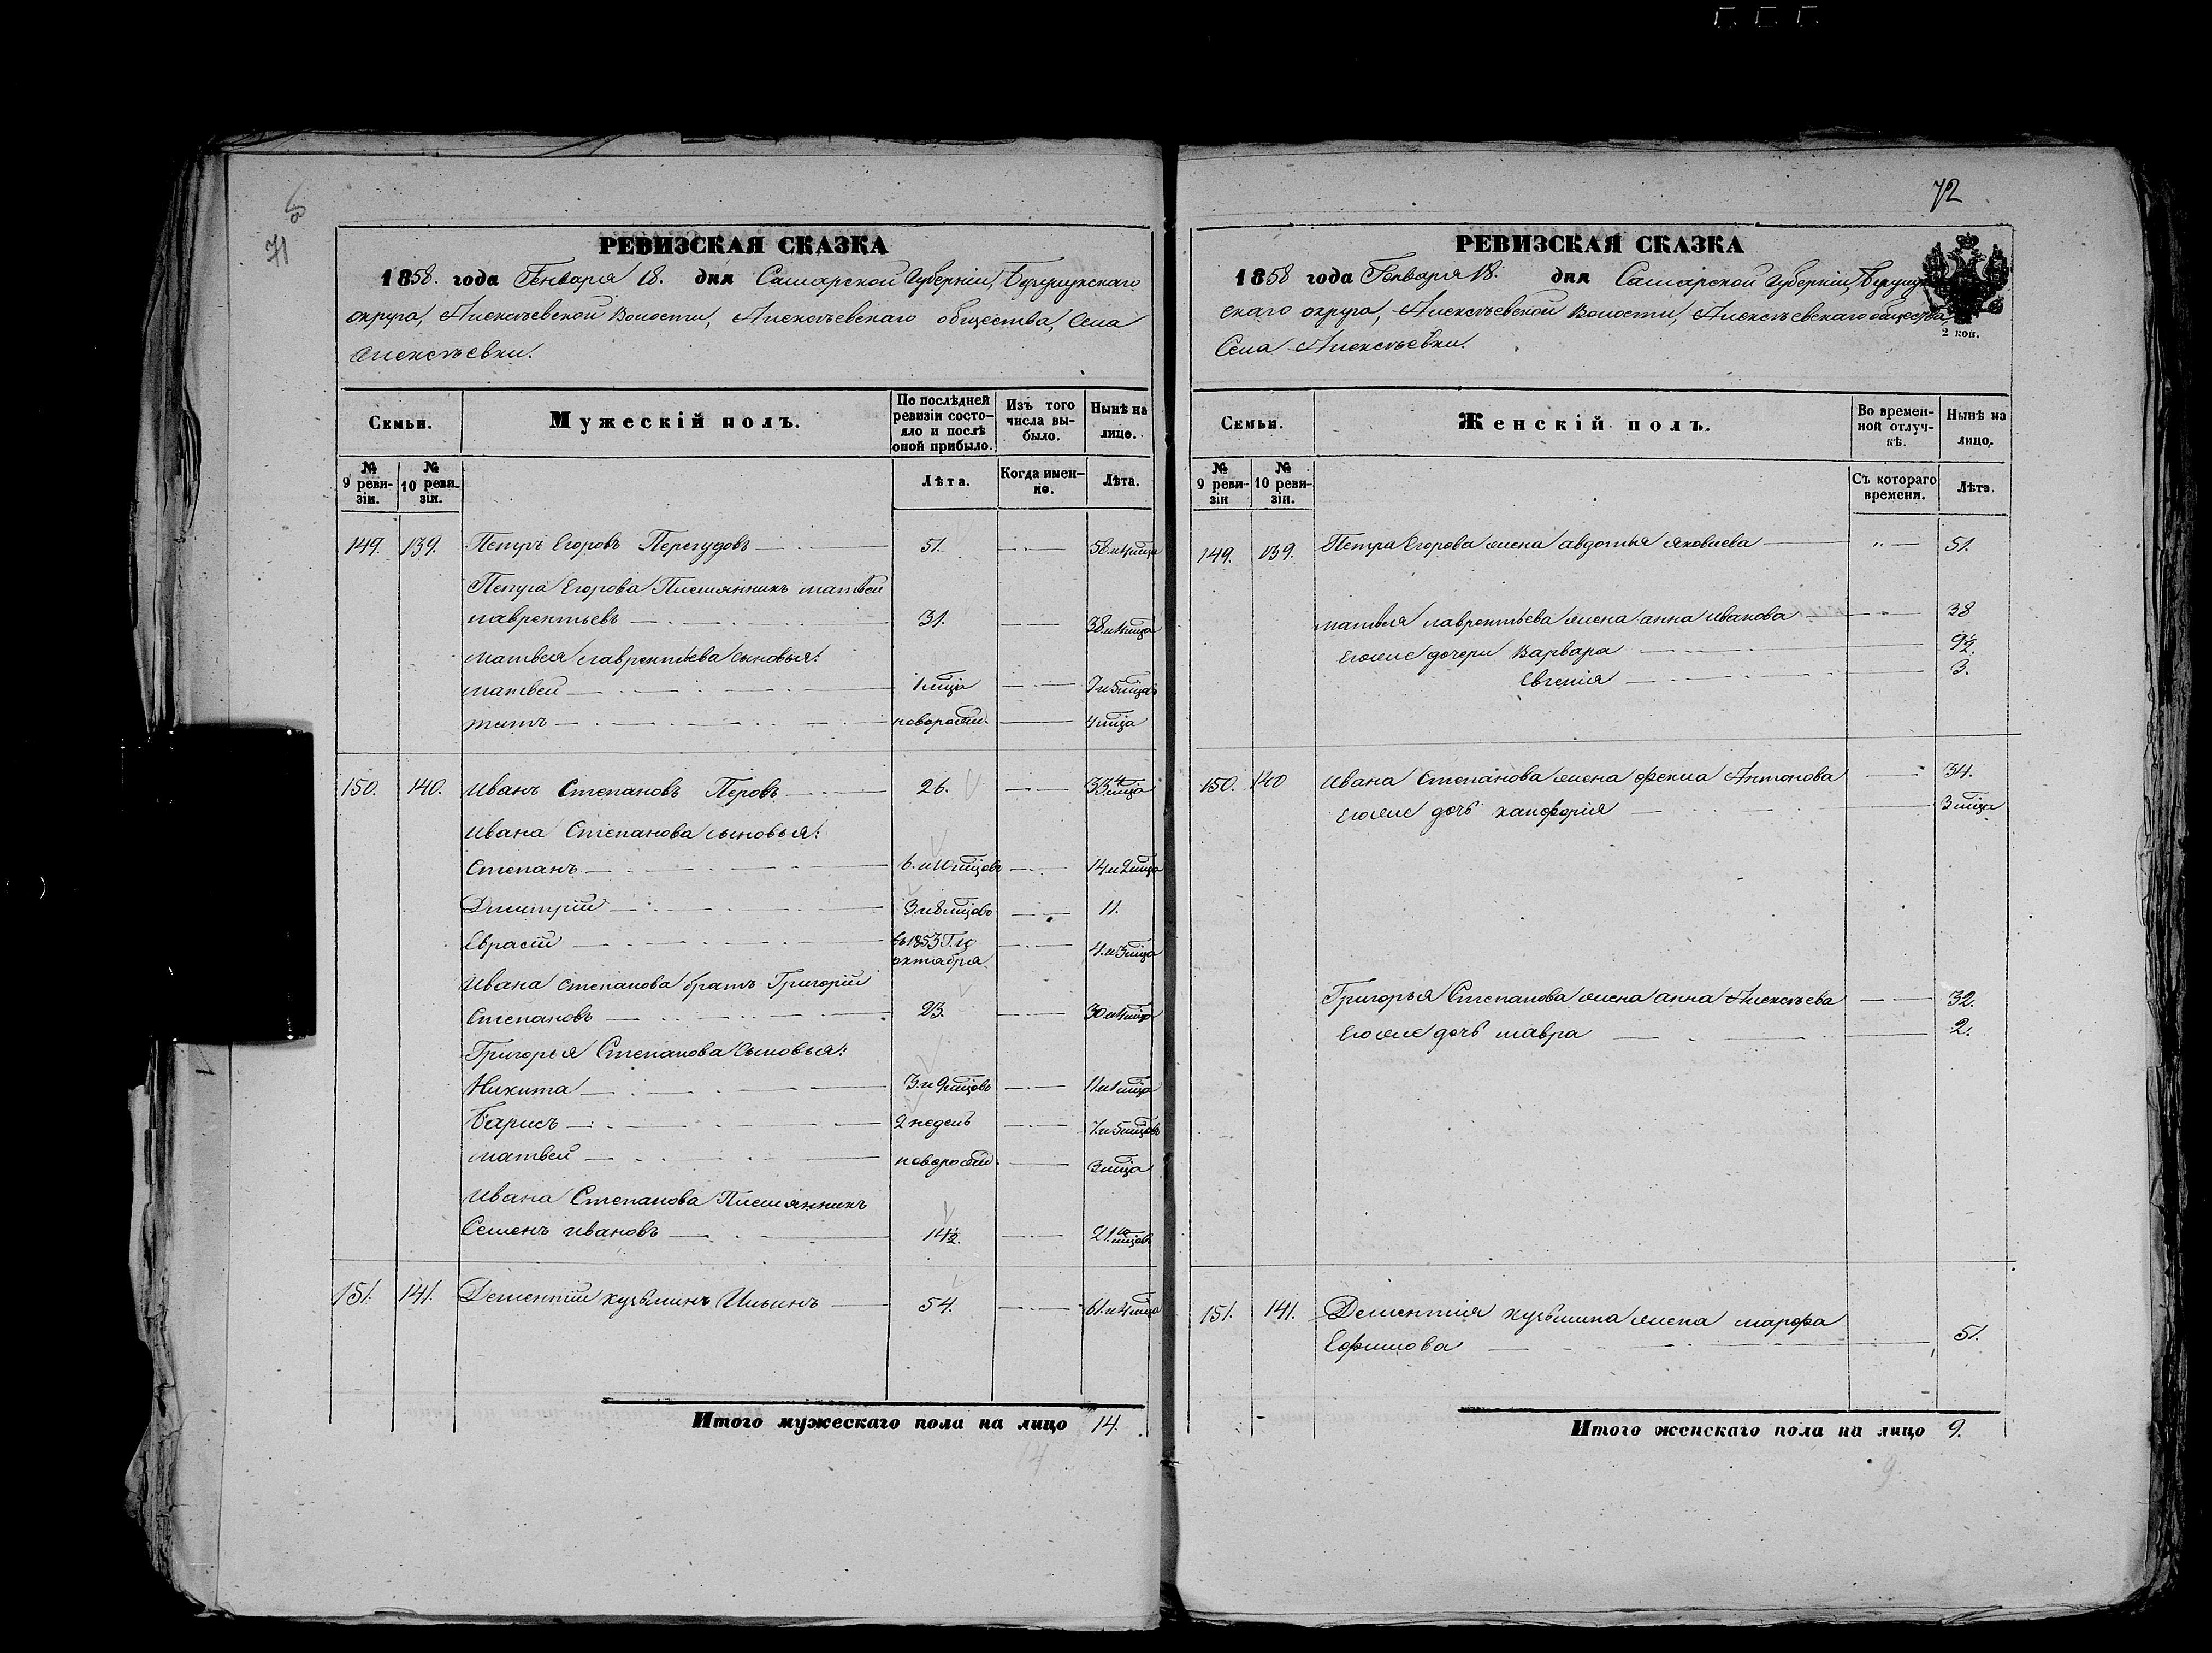 71
РЕВИЗСКАЯ СКАЗКА
1858. года Генваря 18. дня Самарской Губерніи, Бузулукскаго
округа, Алексѣевской Волости, Алексѣевскаго общества, Села
Алексѣевки.
Семьи.
Мужескій полъ.
По послѣдней ревизіи состояло и послѣ оной прибыло.
Изъ того числа выбыло.
Нынѣ на лицо.
№ 9 ревизіи.
№ 10 ревизіи.
Лѣта.
Когда именно.
Лѣта.
149. 139. Петръ Егоровъ Перегудовъ 51. 58. и 4 мца
Петра Егорова Племянникъ матвей
лаврентьевъ 31. 38. и 4 мца
матвея лаврентьева сыновья:
матвей 1 мца 7 и 5 мцов
титъ новорожд. 4 мца
150. 140. Иванъ Степановъ Перовъ 26. 33. 4 мца
Ивана Степанова сыновья:
Степанъ 6. и 10 мцовъ 14. и 2 мца
Дмитрій 3. и 8 мцовъ 11.
Еврасій въ 1853 Г. 
октября 4. и 3 мца
Ивана Степанова братъ Григорій
Степановъ 23. 30 и 4 мца
Григорья Степанова Сыновья:
Никита 3. и 9 мцовъ 11. и 1 мца
Барисъ 2 недель 7. и 5 мцовъ
матвей новорожд. 3 мца
Ивана Степанова Племянникъ
Семенъ Ивановъ 14½. 21. 10 мцовъ
151. 141. Дементій кузьминъ Ильинъ 54. 61. и 4 мца
Итого мужескаго пола на лицо 14.
14
72
РЕВИЗСКАЯ СКАЗКА
1858 года Генваря 18. дня Самарской Губерніи, Бузулук
скаго округа, Алексѣевской Волости, Алексѣевскаго общества,
Села Алексѣевки.
2 коп.
Семьи.
Женскій полъ.
Во временной отлучкѣ.
Нынѣ на лицо.
№ 9 ревизіи
№ 10 ревизіи.
Съ котораго времени.
Лѣта.
149. 139. Петра Егорова жена авдотья яковлева 51.
матвея лаврентьева жена анна иванова 38
Егоже дочери Варвара 9½.
Евгенія 3.
150. 140 Ивана Степанова жена фекла Антонова 34.
Егоже дочь ханфорія 3 мца
Григорья Степанова жена анна Алексѣева 32.
Егоже дочь мавра 2.
151. 141. Дементія кузьмина жена марфа
Ефимова 51.
Итого женскаго пола на лицо 9.
9